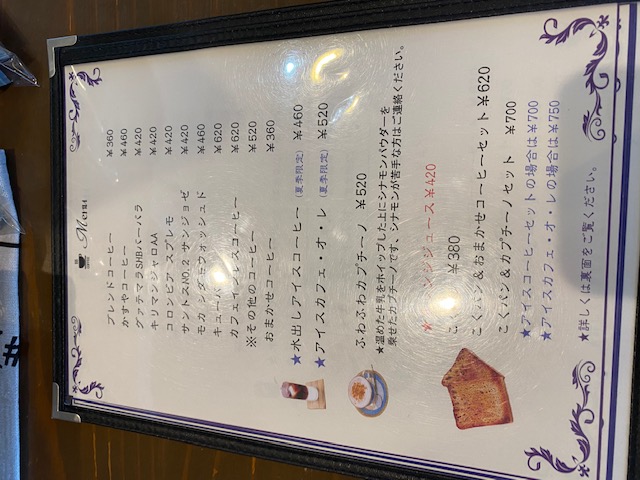 Menu
ブレンドコーヒー ￥360
かずやコーヒー ￥460
グァテマラSHBバーバラ ￥420
キリマンジャロAA ￥420
コロンビア スプレモ ￥420
サントスNO.2 サンジョゼ ￥420
モカ ウォッシュド ￥460
￥620
カフェインレスコーヒー ￥620
※その他のコーヒー ￥520
おまかせコーヒー ￥360
★水出しアイスコーヒー (夏季限定) ￥460
★アイスカフェ・オ・レ (夏季限定) ￥520
ふわふわカプチーノ ￥520
★温めた牛乳をホイップした上にシナモンパウダーを
乗せたカプチーノです、シナモンが苦手な方はご連絡ください。
ンジジュース ￥420
￥380
こくパン＆おまかせコーヒーセット ￥620
こくパン＆カプチーノセット ￥700
★アイスコーヒーセットの場合は￥700
★アイスカフェ・オ・レの場合は￥750
★詳しくは裏面をご覧ください。